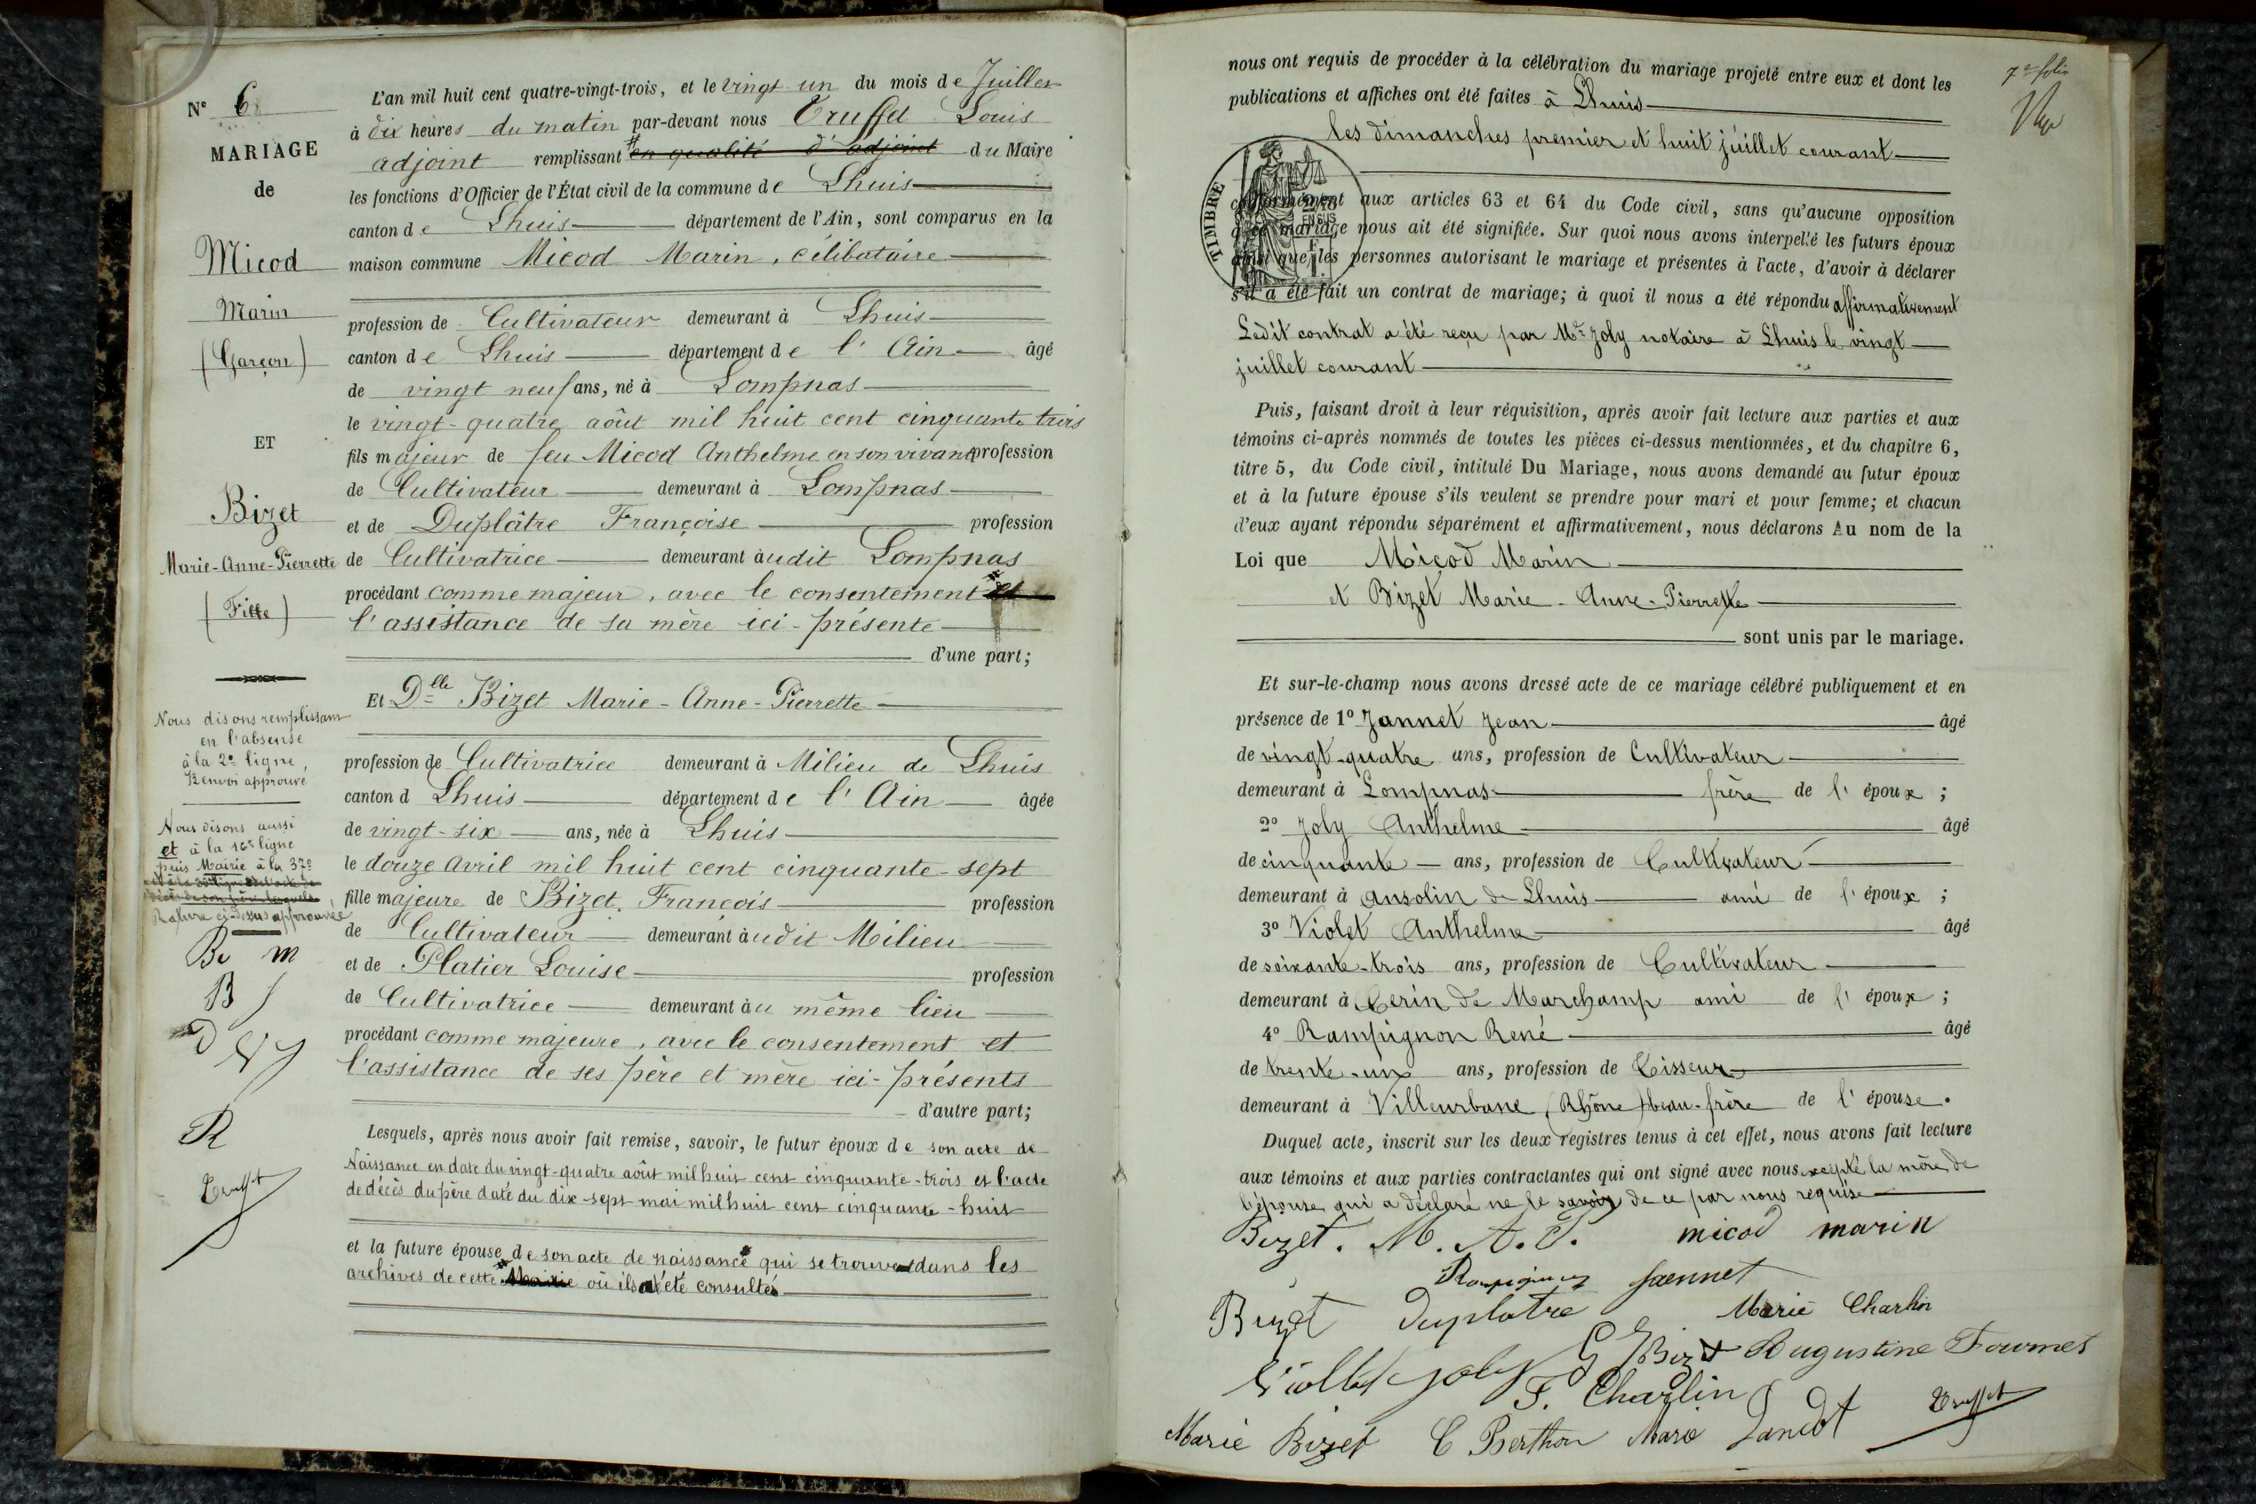 N° 6
MARIAGE
de
Micod
Marin
(Garçon)
ET
Bizet
Marie-Anne-Pierrette
(Fille)
Nous disons remplissant
en l'absense
à la 2e ligne,
Renvoi approuvé
Nous disons aussi
et à la 16e ligne
puis Mairie à la 37e
Rature ci-dessus approuvée
B m
B J
D V J
R
Truffet
L'an mil huit cent quatre-vingt-trois, et le vingt un du mois de Juillet
à dix heures du matin par-devant nous Truffet Louis
adjoint remplissant en qualité d'adjoint du Maire
les fonctions d'Officier de l'État civil de la commune de Lhuis
canton de Lhuis département de l'Ain, sont comparus en la
maison commune Micod Marin, célibataire
profession de Cultivateur demeurant à Lhuis
canton de Lhuis département de l'Ain âgé
de vingt neuf ans, né à Lompnas
le vingt-quatre août mil huit cent cinquante trois
fils majeur de feu Micod Anthelme en son vivant profession
de Cultivateur demeurant à Lompnas
et de Duplâtre Françoise profession
de Cultivatrice demeurant àudit Lompnas
procédant comme majeur, avec le consentement et
l'assistance de sa mère ici-présente
d'une part;
Et Dlle Bizet Marie-Anne-Pierrette
profession de Cultivatrice demeurant à Milieu de Lhuis
canton d Lhuis département de l'Ain âgée
de vingt-six ans, née à Lhuis
le douze Avril mil huit cent cinquante-sept
fille majeure de Bizet François profession
de Cultivateur demeurant àudit Milieu
et de Platier Louise profession
de Cultivatrice demeurant àu même lieu
procédant comme majeure, avec le consentement et
l'assistance de ses père et mère ici-présents
d'autre part;
Lesquels, après nous avoir fait remise, savoir, le futur époux de son acte de
Naissance en date du vingt-quatre août mil huit cent cinquante-trois et l'acte
de décès du père daté du dix-sept mai mil huit cent cinquante-huit
et la future épouse de son acte de naissance qui se trouve dans les
archives de cette Mairie où il a été consulté
7e folio
nous ont requis de procéder à la célébration du mariage projeté entre eux et dont les
publications et affiches ont été faites à Lhuis
les dimanches premier et huit juillet courant
TIMBRE
2/10
EN SUS
conformément aux articles 63 et 64 du Code civil, sans qu'aucune opposition
à ce mariage nous ait été signifiée. Sur quoi nous avons interpelé les futurs époux
ainsi que les personnes autorisant le mariage et présentes à l'acte, d'avoir à déclarer
s'il a été fait un contrat de mariage; à quoi il nous a été répondu affirmativement
Ledit contrat a été reçu par Me Joly notaire à Lhuis le vingt
juillet courant
Puis, faisant droit à leur réquisition, après avoir fait lecture aux parties et aux
témoins ci-après nommés de toutes les pièces ci-dessus mentionnées, et du chapitre 6,
titre 5, du Code civil, intitulé Du Mariage, nous avons demandé au futur époux
et à la future épouse s'ils veulent se prendre pour mari et pour femme; et chacun
d'eux ayant répondu séparément et affirmativement, nous déclarons Au nom de la
Loi que Micod Marin
et Bizet Marie-Anne-Pierrette
sont unis par le mariage.
Et sur-le-champ nous avons dressé acte de ce mariage célébré publiquement et en
présence de 1° Jannet Jean âgé
de vingt-quatre ans, profession de Cultivateur
demeurant à Lompnas frère de l'époux;
2° Joly Anthelme âgé
de cinquante ans, profession de Cultivateur
demeurant à Ansolin de Lhuis ami de l'époux;
3° Violet Anthelme âgé
de soixante-trois ans, profession de Cultivateur
demeurant à Cerin de Marchamp ami de l'époux;
4° Rampignon René âgé
de trente-un ans, profession de Tisseur
demeurant à Villeurbane (Rhône) beau-frère de l'épouse.
Duquel acte, inscrit sur les deux registres tenus à cet effet, nous avons fait lecture
aux témoins et aux parties contractantes qui ont signé avec nous excepté la mère de
l'épouse qui a déclaré ne le savoir de ce par nous requise
Bizet. M. A. P. micod marin
Rampignon Jaennet
Bizet Duplatre Marie Charlin
Viollet Joly G Bizet Augustine Fournet
F. Charlin
Marie Bizet C Berthon Marie Truffet